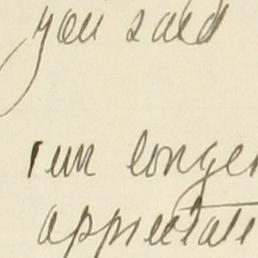 you said
run longer
appreciate